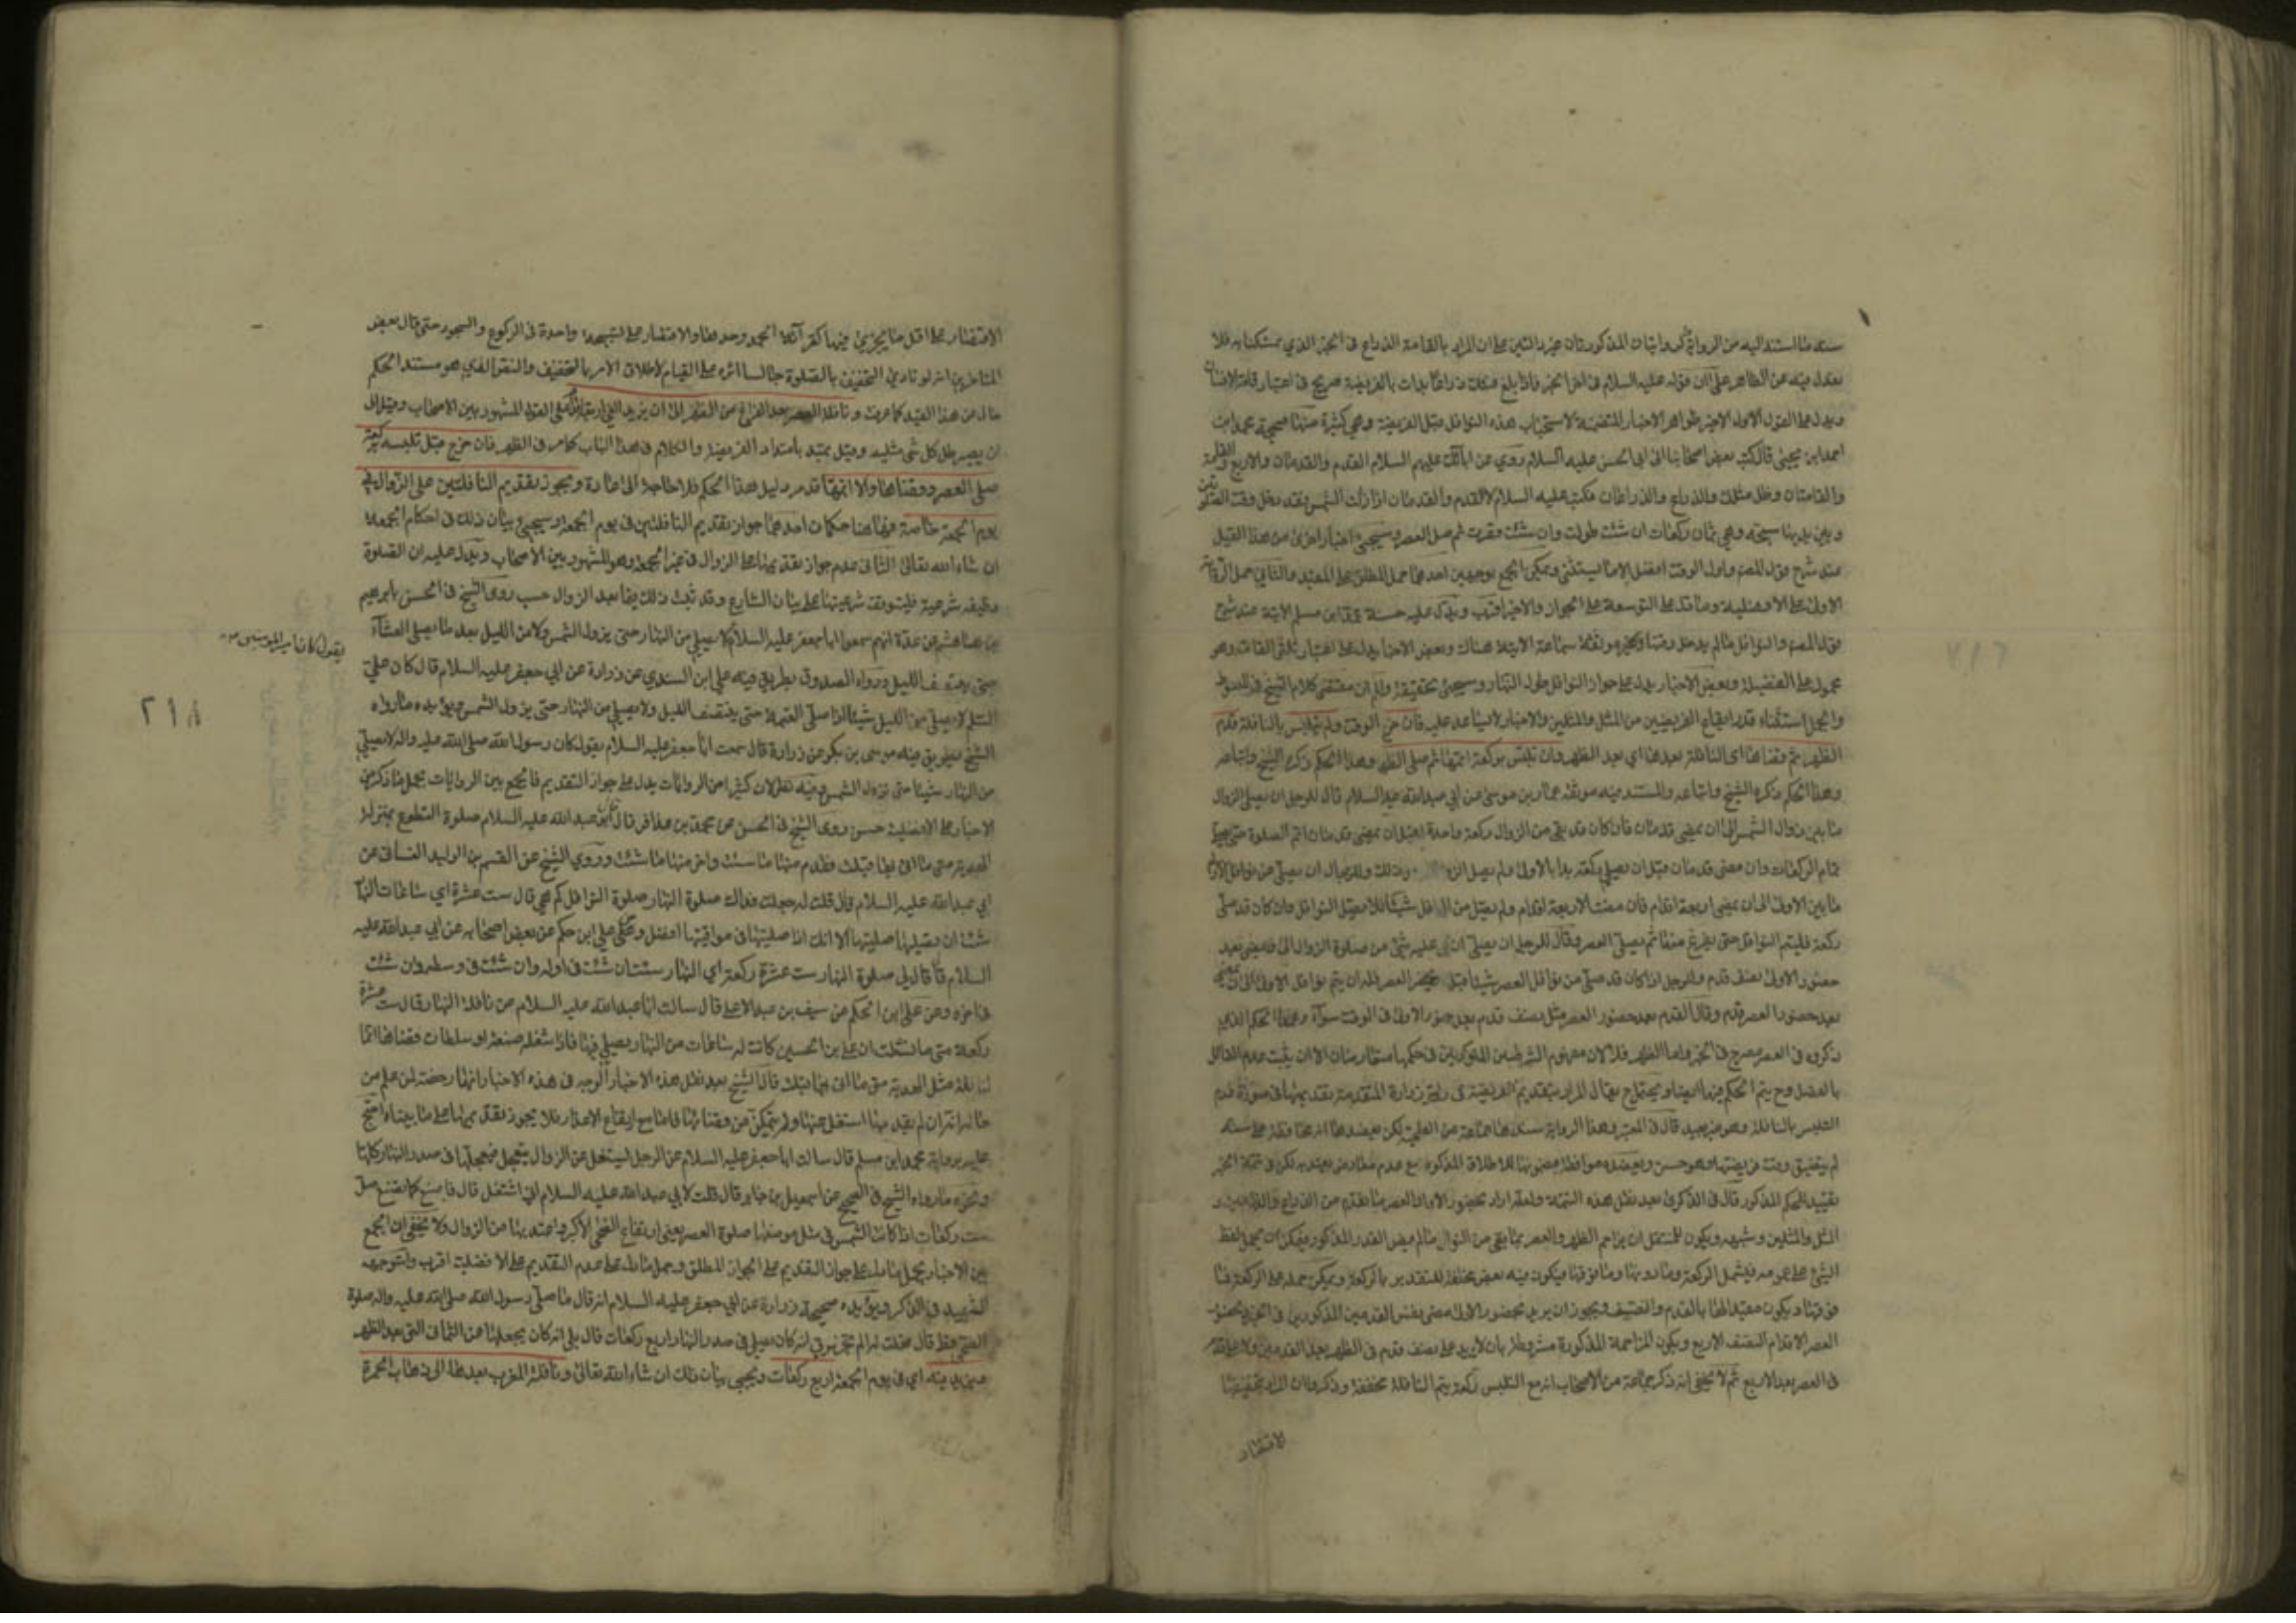 سند ما استند اليه من الرواية كروايات المذكورتان غير دالتين على ان المراد بالقامة الذراع في الخبر الذي تمسكنا به فلا
نعدل فيه عن الظاهر على ان قوله عليه السلام في اخر الخبر فاذا بلغ فيئك ذراعا بدات بالفريضة صريح في اعتبار قامة الانسان
ويدل على القول الاول الاخير ظواهر الاخبار المتضمنة لاستحباب هذه النوافل قبل الفريضة وهي كثيرة منها صحيحة محمد ابن
احمد ابن يحيى قال كتب بعض اصحابنا الى ابي الحسن عليه السلام روي عن ابائك عليهم السلام القدم والقدمان والاربع والقامة
والقامتان وظل مثلك والذراع والذراعان فكتب عليه السلام لا القدم والقدمان اذا زالت الشمس فقد دخل وقت الصلوتين
وبين يديها سبحة وهي ثمان ركعات ان شئت طولت وان شئت قصرت ثم صل العصر وسيجيء اخبار اخرى من هذا القبيل
عند شرح قول المصنف واول الوقت افضل الا ما يستثنى ويمكن الجمع بوجهين احدهما حمل المطلق على المقيد والثاني حمل الروايات
الاولى على الافضلية وما تدل على التوسعة على الجواز والاخير اقرب ويدل عليه حسنة محمد ابن مسلم الاتية عند شرح
قول المصنف والنوافل مالم يدخل وقتها ونحوه موثقة سماعة الاتية هناك وبعض الاخبار يدل على اعتبار ثلثي القامة وهو
محمول على الفضيلة وبعض الاخبار يدل على جواز النوافل طول النهار وسيجيء تحقيقه واعلم ان مقتضى كلام الشيخ في المبسوط
والجمل استثناء قدر ايقاع الفريضتين من المثل والمثلين والاخبار لا يساعد عليه فان خرج الوقت ولم يتلبس بالنافلة قدم
الظهر ثم قضاها اى النافلة بعدها اي بعد الظهر وان تلبس بركعة اتمها ثم صلى الظهر وهذا الحكم ذكره الشيخ واتباعه
وهذا الحكم ذكره الشيخ واتباعه والمستند فيه موثقة عمار بن موسى عن ابي عبدالله عليه السلام قال للرجل ان يصلي الزوال
ما بين زوال الشمس الى ان يمضي قدمان فان كان قد بقي من الزوال ركعة واحدة او قبل ان يمضي قدمان اتم الصلوة حتى يصلي
تمام الركعات وان مضى قدمان قبل ان يصلي ركعة بدا بالاولى ولم يصل الزوال الا بعد ذلك وللرجل ان يصلي من نوافل الاولى
ما بين الاولى الى ان يمضي اربعة اقدام فان مضت الاربعة اقدام ولم يصل من النوافل شيئا فلا يصلي النوافل وان كان قد صلى
ركعة فليتم النوافل حتى يفرغ منها ثم يصلي العصر وقال للرجل ان يصلي ان بقي عليه شئ من صلوة الزوال الى ان يمضي بعد
حضور الاولى نصف قدم وللرجل اذا كان قد صلى من نوافل العصر شيئا قبل ان تحضر العصر فله ان يتم نوافل الاولى الى ان يمضي
بعد حضور العصر قدم وقال القدم بعد حضور العصر مثل نصف قدم بعد حضور الاولى في الوقت سواء وهذا الحكم الذي
ذكروه في العصر مصرح في الخبر واما الظهر فلان مفهوم الشرطين المذكورين في حكمها متعارضان الا ان يثبت عدم القائل
بالفصل وح يتم الحكم فيها ايضا
التلبس بالنافلة وهو غير بعيد قال في المعتبر وهذا الرواية سندها جماعة من الفطحية لكن يعضدها انه محافظة على سنة
لم يتضيق وقت فريضتها وهو حسن ويعضده موافقة مضمونها للاطلاق المذكورة مع عدم معارض يعتد به لكن في تتمة الخبر
تقييد للحكم المذكور قال في الذكرى بعد نقل هذه التتمة ولعله اراد بحضور الاولى والعصر ما تقدم من الذراع والذراعين و
المثل والمثلين وشبهه ويكون للمتنفل ان يزاحم الظهر والعصر بما بقي من النوافل مالم يمض القدر المذكور فيمكن ان يحمل لفظ
الشئ على عمومه فيشمل الركعة وما دونها وما فوقها فيكون فيه بعض مخالفة للتقدير بالركعة ويمكن حمله على الركعة فما
فوقها ويكون مقيدا لها بالقدم والنصف ويجوز ان يريد بحضور الاولى مضي نفس القدمين المذكورين في الخبر وبحضور
العصر الاقدام النصف الاربع ويكون المزاحمة المذكورة مشروطة بان لا يزيد على نصف قدم في الظهر بعد القدمين ولا على قدم
في العصر بعد الاربع ثم لا يخفى انه ذكر جماعة من الاصحاب انه مع التلبس بركعة يتم النافلة مخففة وذكروا ان المراد بتخفيفها
الاقتصار
الاقتصار على اقل ما يجزي فيها كقراءة الحمد وحدها والاقتصار على تسبيحة واحدة في الركوع والسجود حتى قال بعض
المتاخرين انه لو تادى التخفيف بالصلوة جالسا اثره على القيام لاطلاق الامر بالتخفيف والنص الذي هو مستند الحكم
خال من هذا القيد كما عرفت ونافلة العصر بعد الفراغ من الظهر الى ان يزيد الفئ اربعة اقدام على القول المشهور بين الاصحاب وقيل الى
ان يصير ظل كل شئ مثليه وقيل يمتد بامتداد الفريضة والكلام في هذا الباب كما مر في الظهر فان خرج قبل تلبسه بركعة
صلى العصر وقضاها والا اتمها قد مر دليل هذا الحكم فلا حاجة الى اعادة ويجوز تقديم النافلتين على الزوال في
يوم الجمعة خاصة فهاهنا حكمان احدهما جواز تقديم النافلتين في يوم الجمعة وسيجيئ بيان ذلك في احكام الجمعة
ان شاء الله تعالى الثاني عدم جواز تقديمها على الزوال في غير الجمعة وهو المشهور بين الاصحاب ويدل عليه ان الصلوة
وظيفة شرعية فليتوقف شرعيتها على بيان الشارع وقد ثبت ذلك فيما بعد الزوال حسب روى الشيخ في الحسن بابراهيم
بن هاشم عن عدة انهم سمعوا ابا جعفر عليه السلام لا يصلي من النهار حتى يزول الشمس ولا من الليل بعد ما يصلي العشاء
يقول كان امير المؤمنين
حتى ينتصف الليل ورواه الصدوق بطريق فيه علي ابن السندي عن زرارة عن ابي جعفر عليه السلام قال كان علي
السلم لا يصلي من الليل شيئا اذا صلى العتمة حتى ينتصف الليل ولا يصلي من النهار حتى يزول الشمس ويؤيده ما رواه
الشيخ بطريق فيه موسى بن بكر عن زرارة قال سمعت ابا جعفر عليه السلام يقول كان رسول الله صلى الله عليه واله لا يصلي
من النهار شيئا حتى تزول الشمس وفيه نظر لان كثيرا من الروايات يدل على جواز التقديم فالجمع بين الروايات بحمل ما ذكر من
الاخبار على الافضلية حسن روى الشيخ في الحسن عن محمد بن عذافر قال قال ابو عبد الله عليه السلام صلوة التطوع بمنزلة
الهدية متى ما اتى بها قبلت فقدم منها ما شئت واخر منها ما شئت وروي الشيخ عن القسم بن الوليد الغساني عن
ابي عبدالله عليه السلام قال قلت له جعلت فداك صلوة النهار صلوة النوافل كم هي قال ست عشرة اي ساعات النهار
شئت ان تصليها صليتها الا انك اذا صليتها في مواقيتها افضل وعن علي ابن حكم عن بعض اصحابه عن ابي عبدالله عليه
السلام قال قال لي صلوة النهار ست عشرة ركعة اي النهار شئت ان شئت في اوله وان شئت في وسطه وان شئت
في اخره وعن علي ابن الحكم عن سيف بن عبد الاعلى قال سالت ابا عبدالله عليه السلام عن نافلة النهار قال ست عشرة
ركعة متى ما نشطت ان علي بن الحسين كانت له ساعات من النهار يصلي فيها فاذا شغله ضيعة او سلطان قضاها انما
النافلة مثل الهدية متى ما اتى بها قبلت قال الشيخ بعد نقل هذه الاخبار الوجه في هذه الاخبار انها رخصة لمن علم من
حاله انه ان لم يقدمها اشتغل عنها ولم يتمكن من قضائها فاما مع ارتفاع الاعذار فلا يجوز تقديمها على ما بيناه واحتج
عليه برواية محمد ابن مسلم قال سالت ابا جعفر عليه السلام عن الرجل ليشتغل عن الزوال يتعجل فيعجلها في صدر النهار كلها
ونحوه ما رواه الشيخ في الصحيح عن اسمعيل بن جابر قال قلت لابي عبدالله عليه السلام اني اشتغل قال فاصنع كما نصنع صل
ست ركعات اذا كانت الشمس في مثل موضعها صلوة العصر يعني ارتفاع الضحى الاكبر واعتد بها من الزوال ولا يخفى ان الجمع
بين الاخبار بحمل ما دل على جواز التقديم على الجواز المطلق وحمل ما دل على عدم التقديم على الافضلية اقرب واستوجهه
الشهيد في الذكرى ويؤيده صحيحة زرارة عن ابي جعفر عليه السلام انه قال ما صلى رسول الله صلى الله عليه واله صلوة
الضحى قط قال فقلت له الم تخبرني انه كان يصلي في صدر النهار اربع ركعات قال بلى انه كان يجعلها من الثمان التي بعد الظهر
اي في يوم الجمعة اربع ركعات ويجيى بيان ذلك ان شاء الله تعالى ونافلة المغرب بعدها الى ذهاب الحمرة
٢١٨